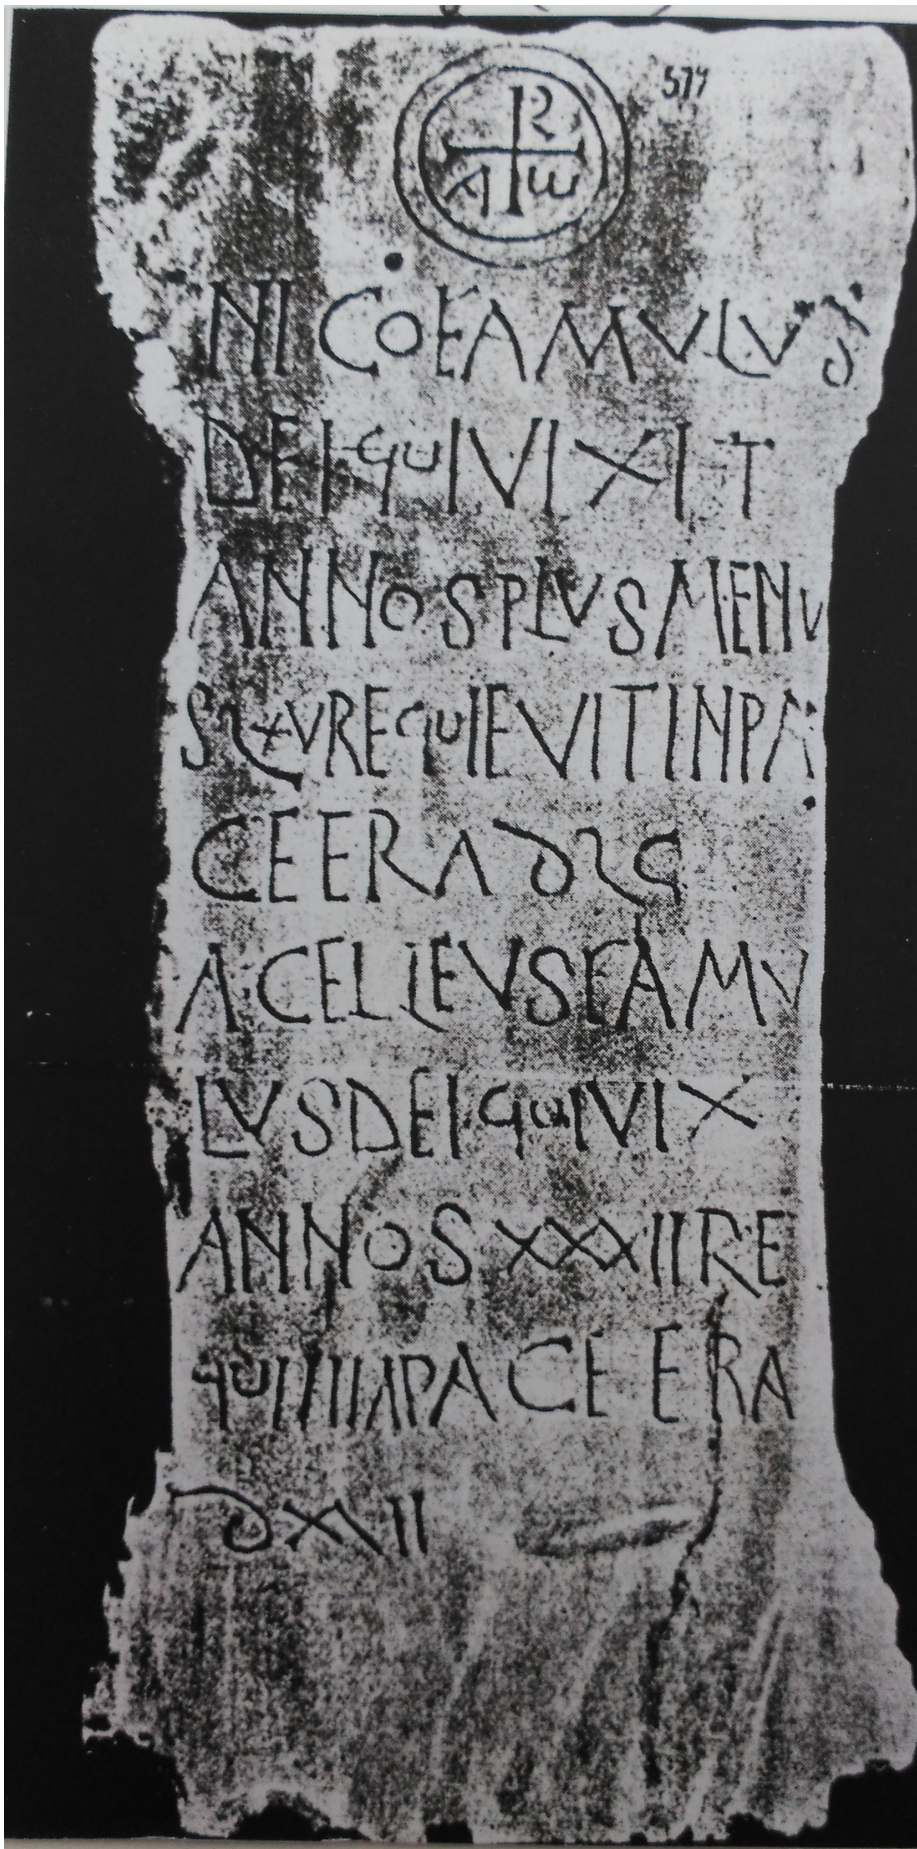 R
A ω
NICO FAMVLVS
DEI quI VIXIT
ANNOS PLVS MENV
S REquIEVIT IN PA
CE ERA
ACELLEVS FAMV
LVS DEI quI VIX
ANNOS XXXII RE
PACE ERA